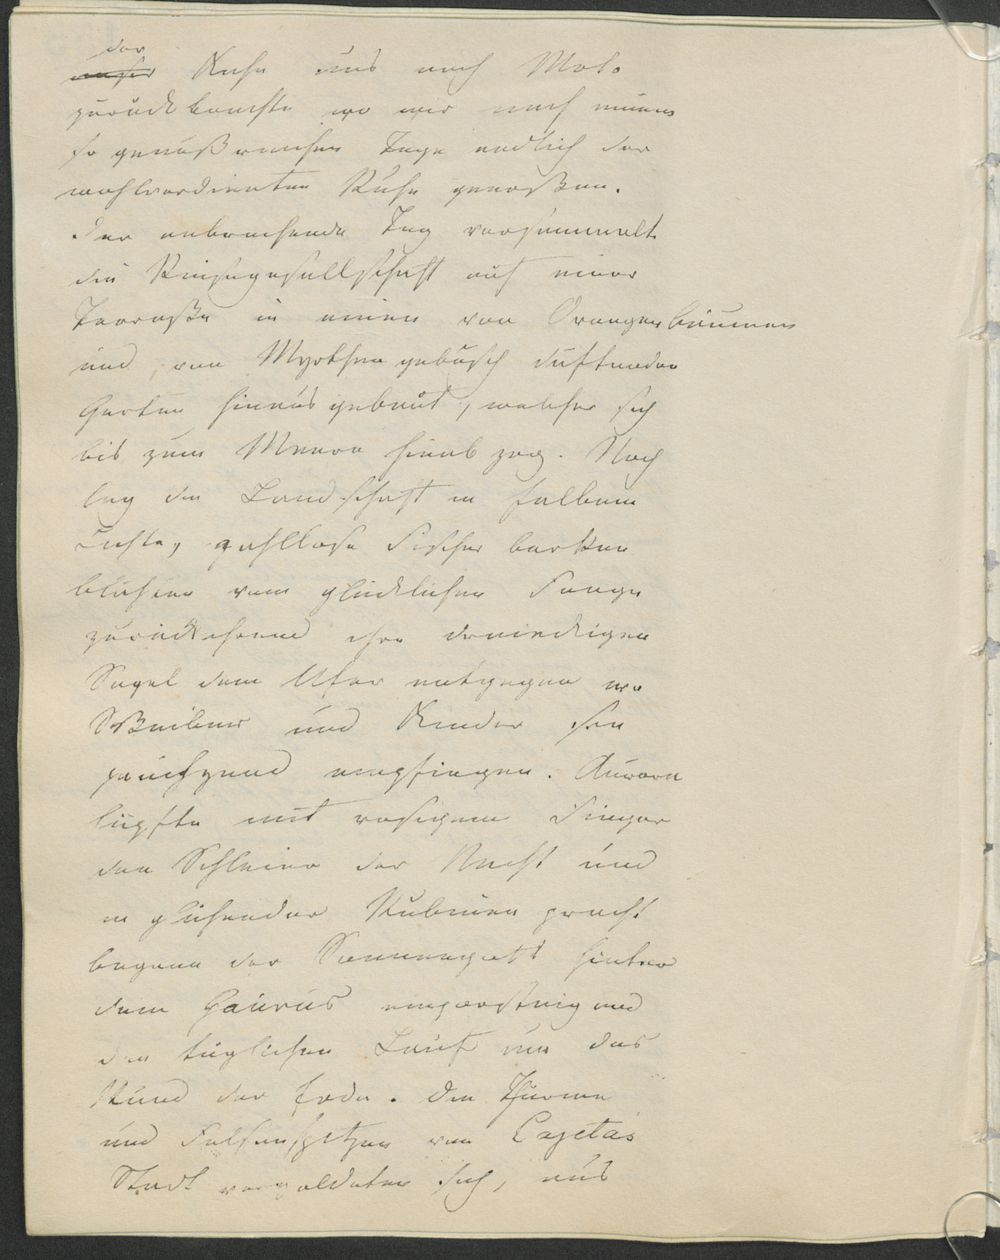 der
unser Kahn uns nach Mola
zurück brachte wo wir nach einem
so genußreichen Tage endlich der
wohlverdienten Ruhe genoßen.
Der anbrechende Tag versammelt
die Reisegesellschaft auf einer
Terraße in einen von Orangenbäumen
und von Myrthengebüsch duftenden
Garten hinausgebaut, welcher sich
bis zum Meere hinab zog. Noch
lag die Landschaft in falbem
Lichte, zahllose Fischer barken
blähten vom glücklichen Fange
zurückkehrend ihre dreieckigen
Segel dem Ufer entgegen wo
Weiber und Kinder sie
jauchzend empfingen. Aurora
lüpfte mit rosigem Finger
den Schleier der Nacht und
in glühender Rubinen pracht
begann der Sonnengott hinter
dem Gaurus emporsteigend
den täglichen Lauf um das
Rund der Erde. Die Thürme
und Felsenspitzen von Cajetas
Stadt vergoldeten sich, aus